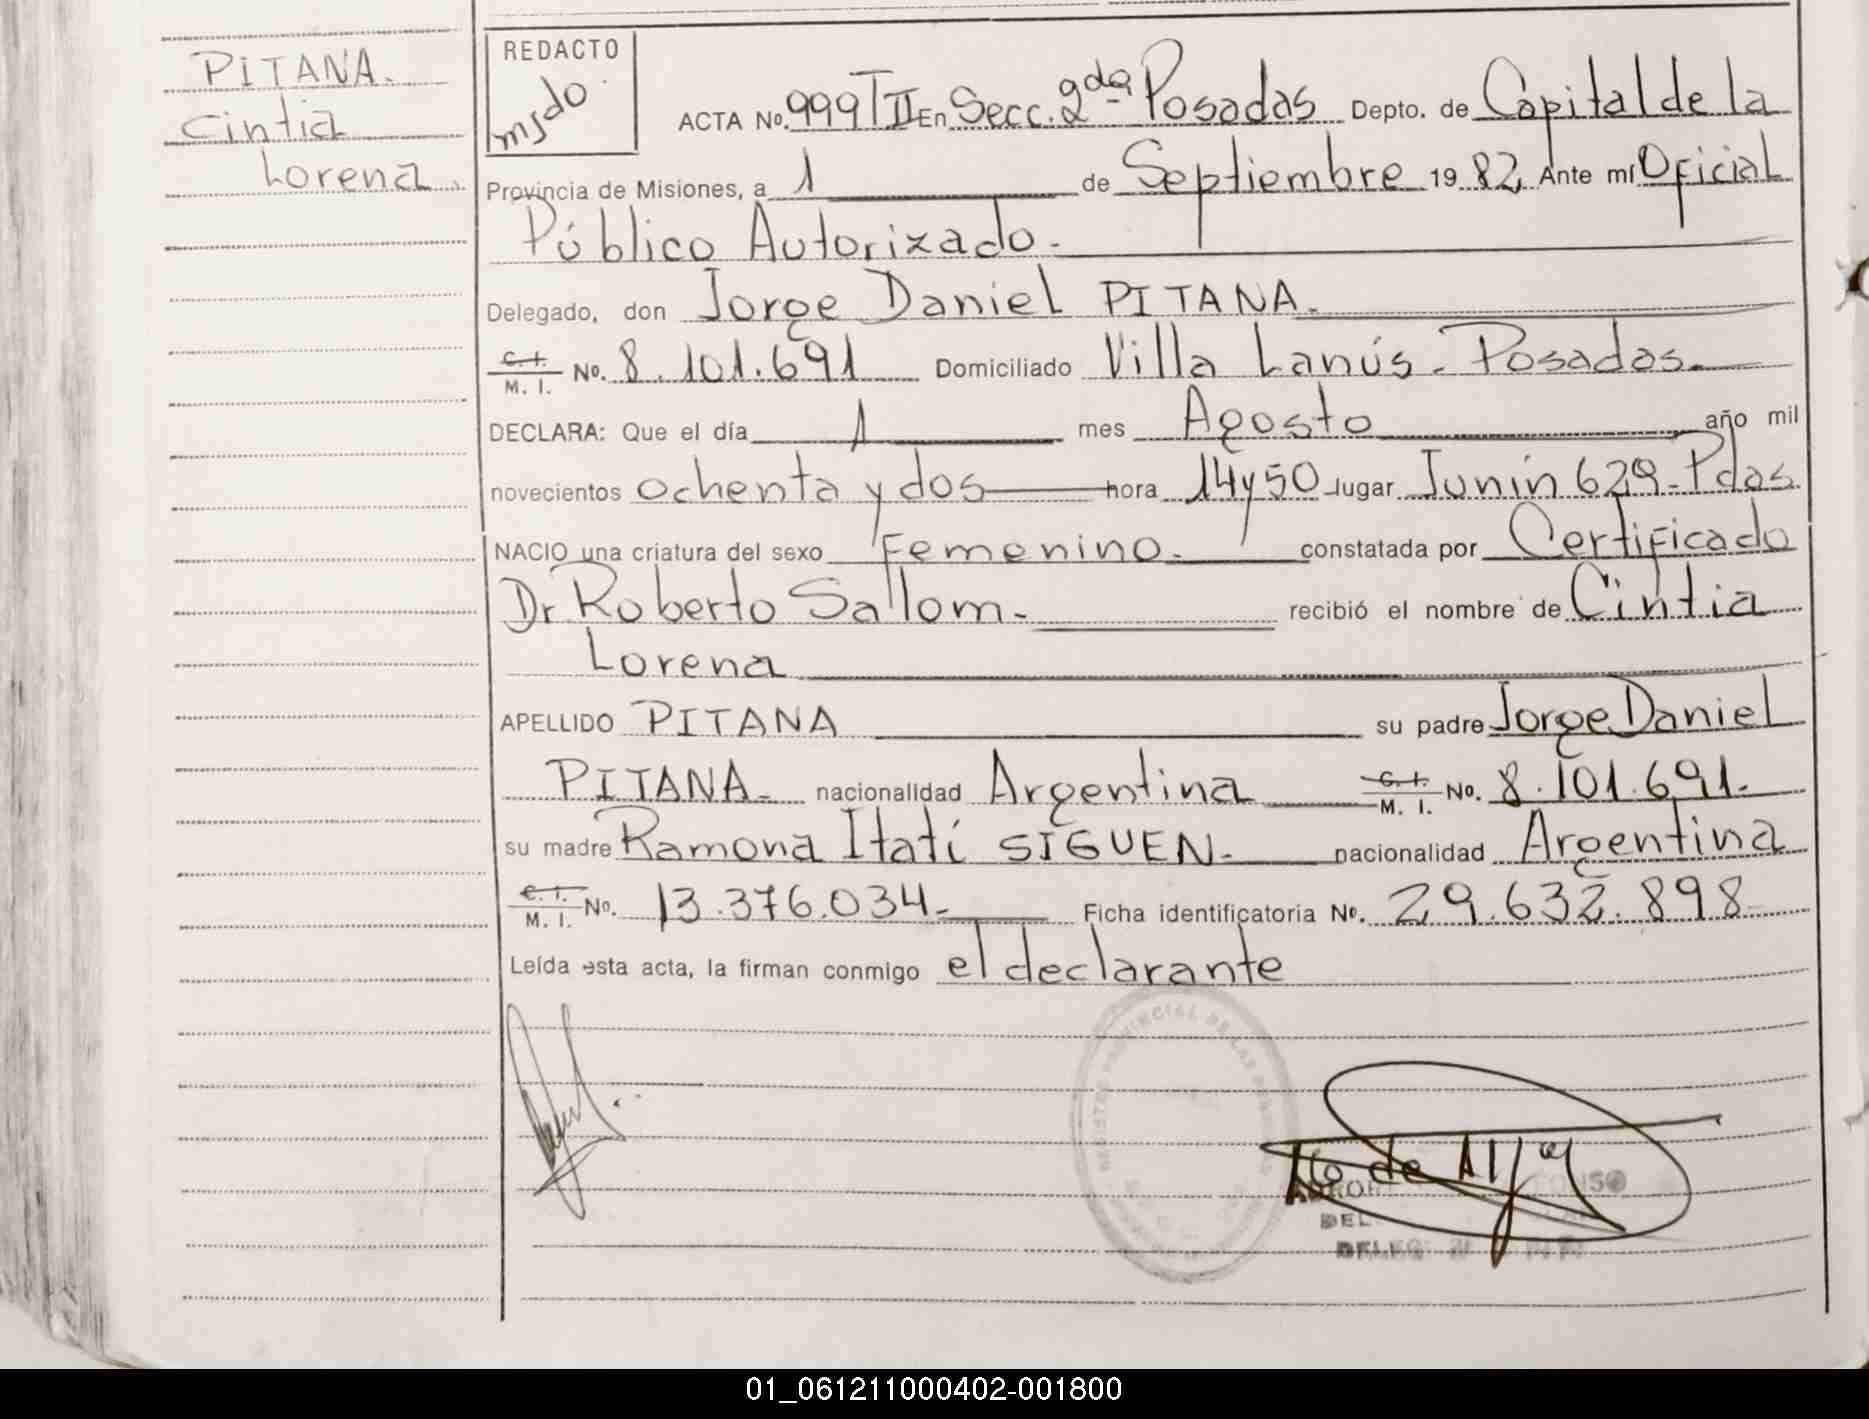 PITANA.
Cintia
Lorena.
REDACTO
ACTA No. 999 T II En Secc. 2da Posadas Depto. de Capital de la
Provincia de Misiones, a 1 de Septiembre 1982, Ante mí Oficial
Público Autorizado.-
Delegado, don Jorge Daniel PITANA.
C. I. M. I. No. 8.101.691 Domiciliado Villa Lanús - Posadas.
DECLARA: Que el día 1 mes Agosto año mil
novecientos ochenta y dos hora 14 y 50 lugar Junín 629 - Pdas.
NACIO una criatura del sexo Femenino.- constatada por Certificado
Dr. Roberto Sallom.- recibió el nombre de Cintia
Lorena
APELLIDO PITANA su padre Jorge Daniel
PITANA - nacionalidad Argentina C. I. M. I. No. 8.101.691.
su madre Ramona Itatí SIGUEN - nacionalidad Argentina
C. I. M. I. No. 13.376.034 - Ficha identificatoria No. 29.632.898
Leída esta acta, la firman conmigo el declarante
REGISTRO PROVINCIAL DE LAS PERSONAS
01_061211000402-001800